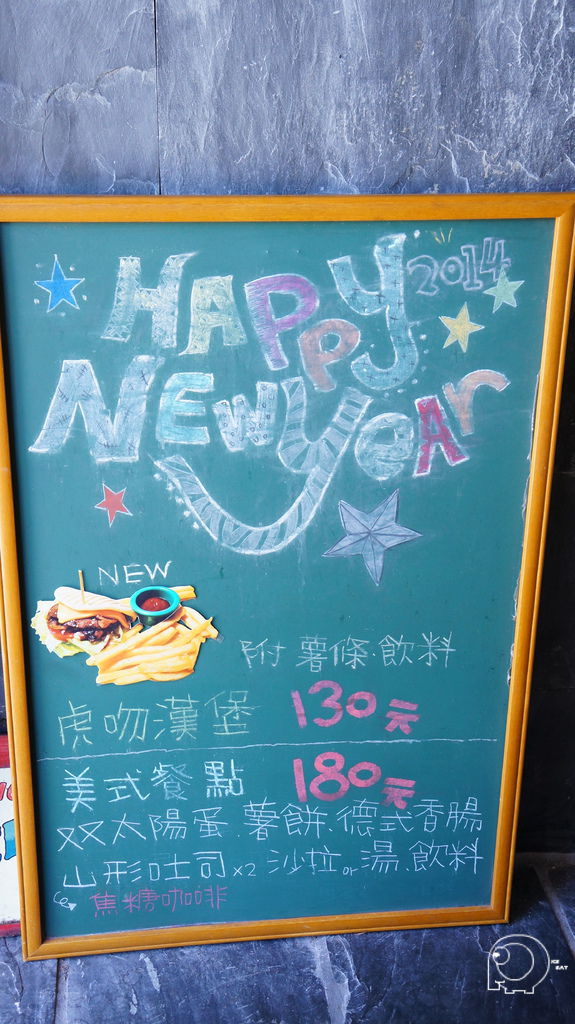 HAPPY 2014
NEW YeAr
NEW
附 薯條.飲料
虎吻漢堡 130元
美式餐點 180元
双太陽蛋.薯餅.德式香腸
山形吐司x2 沙拉or湯.飲料
焦糖咖啡
ICE
EAT